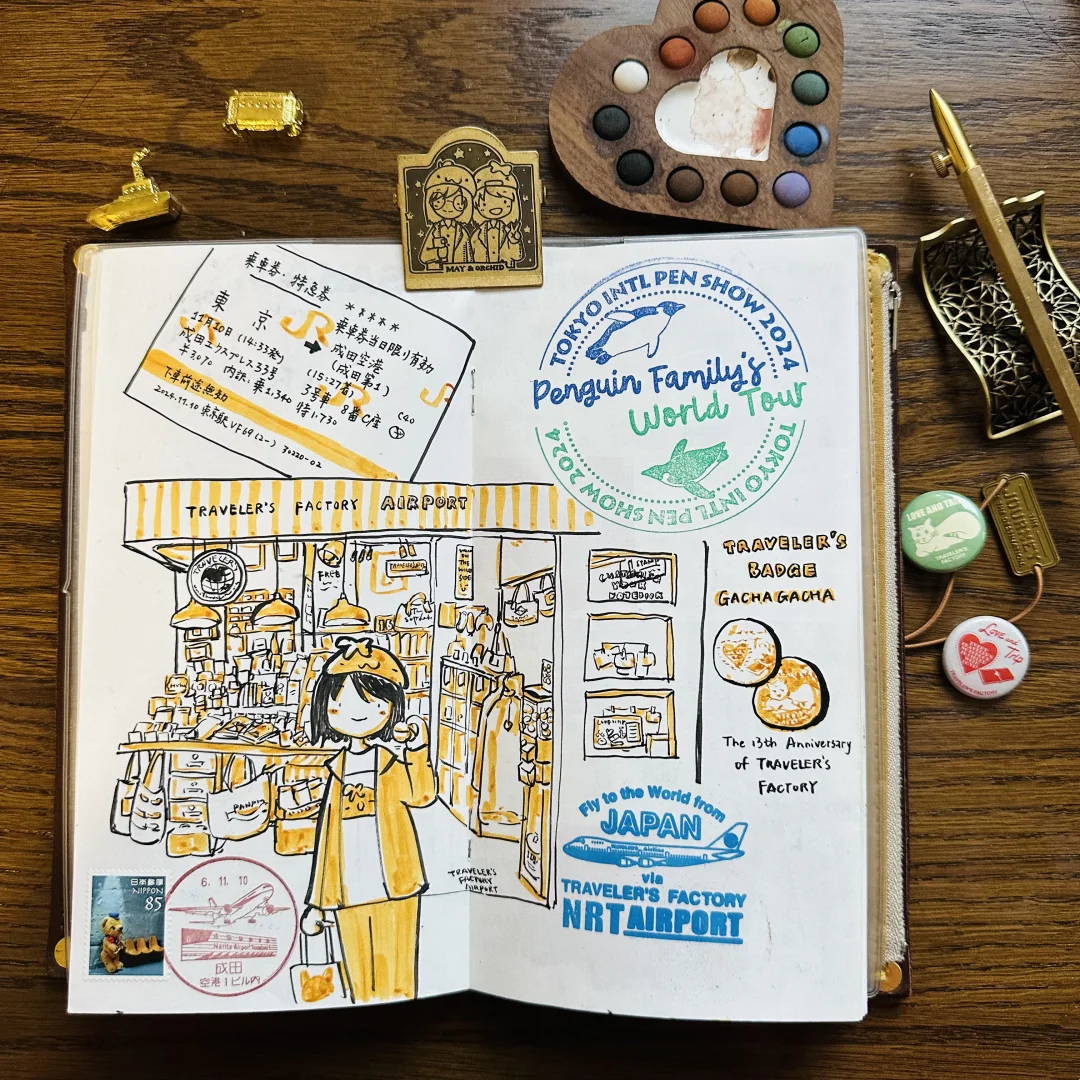 MAY & ORCHID
乗車券・特急券
*****
東 京
JR
乗車券当日限り有効
11月10日 (14:33発)
成田空港
(成田第1)
成田エクスプレス33号
(15:27着)
3号車 8番C座
¥3070 内訳:乗1.340 特1.730
下車前途無効
2024.11.10 東京駅VF69(2-) 30220-02
TOKYO INTL PEN SHOW 2024
Penguin Family's
World Tour
TOKYO INTL PEN SHOW 2024
TRAVELER'S FACTORY AIRPORT
TRAVELER'S
STAMP
CUSTOMIZE
YOUR
NOTEBOOK
TRAVELER'S
BADGE
GACHAGACHA
The 13th Anniversary
of TRAVELER'S
FACTORY
TRAVELER'S
FACTORY
AIRPORT
日本郵便
NIPPON
85
6. 11. 10
Narita Airport Terminal 1
成田
空港1ビル内
Fly to the World from
JAPAN
via
TRAVELER'S FACTORY
NRT AIRPORT
LOVE AND TR
TRAVELER'S
FACTORY
Love and
Trip
TRAVELER'S FACTORY